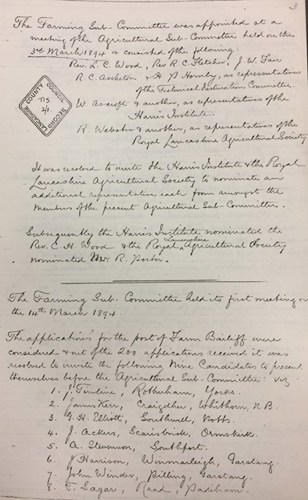 3
The Farming Sub-Committee was appointed at a
meeting of the Agricultural Sub-Committee held on the
3rd March 1894 & consisted of the following:
Rev. L. C. Wood, Rev. R. C. Fletcher, J. W. Fair
R. C. Assheton & H. P. Hornby, as representatives
of the Technical Instruction Committee.
W. Ascroft & another, as representatives of the
Harris Institute.
R. Webster & another, as representatives of the
Royal Lancashire Agricultural Society
COUNTY COUNCIL
RECORD
It was resolved to invite the Harris Institute & the Royal
Lancashire Agricultural Society to nominate an
additional representative each from amongst the
members of the present Agricultural Sub-Committee.
Subsequently the Harris Institute nominated the
Rev. C. H. Wood & the Royal Lancashire Agricultural Society
nominated Mr. R. Parker.
The Farming Sub-Committee held its first meeting on
the 14th March 1894
The applications for the post of Farm Bailiff were
considered & out of the 200 applications received it was
resolved to invite the following nine Candidates to present
themselves before the Agricultural Sub-Committee: viz
1. J. Rotherham, Yorks.
2. James Kerr, Craigdhu, Whithorn, N.B.
3. G. H. Elliott, Southwell, Notts.
4. J. Ackers, Scarisbrick, Ormskirk.
5. A. Stevenson, Southport.
6. J. Harrison, Winmarleigh, Garstang.
7. John Winder, Pilling, Garstang.
8. T. Eagar, Read, Padiham.